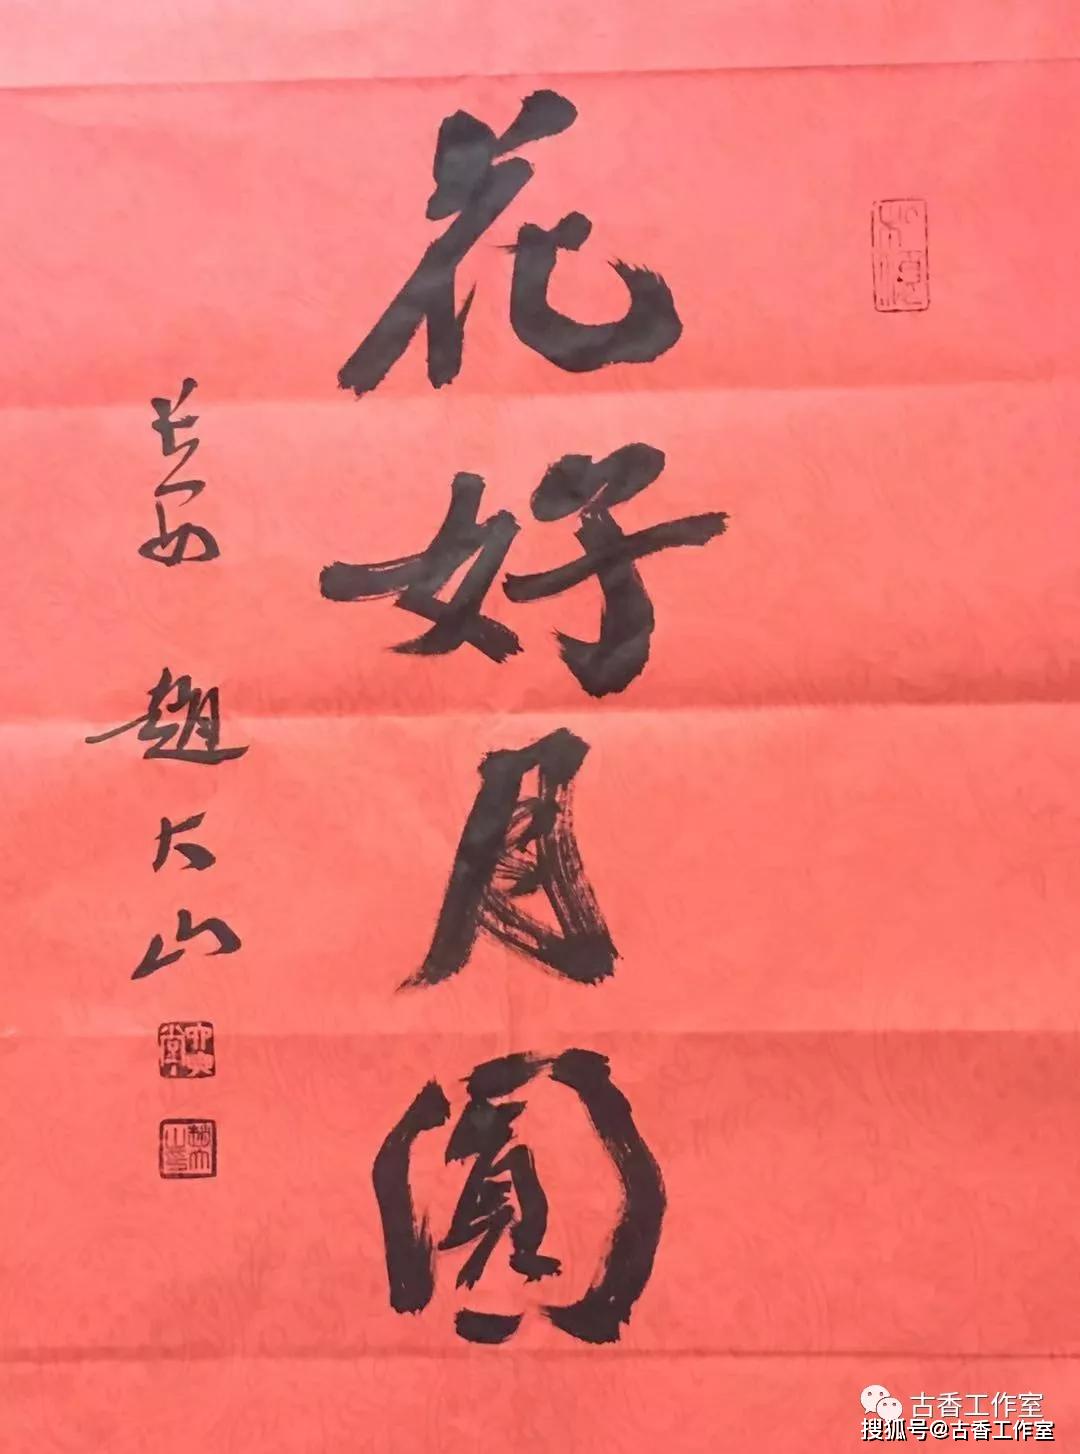 花好月圓
长安 趙大山
古香工作室
搜狐号@古香工作室